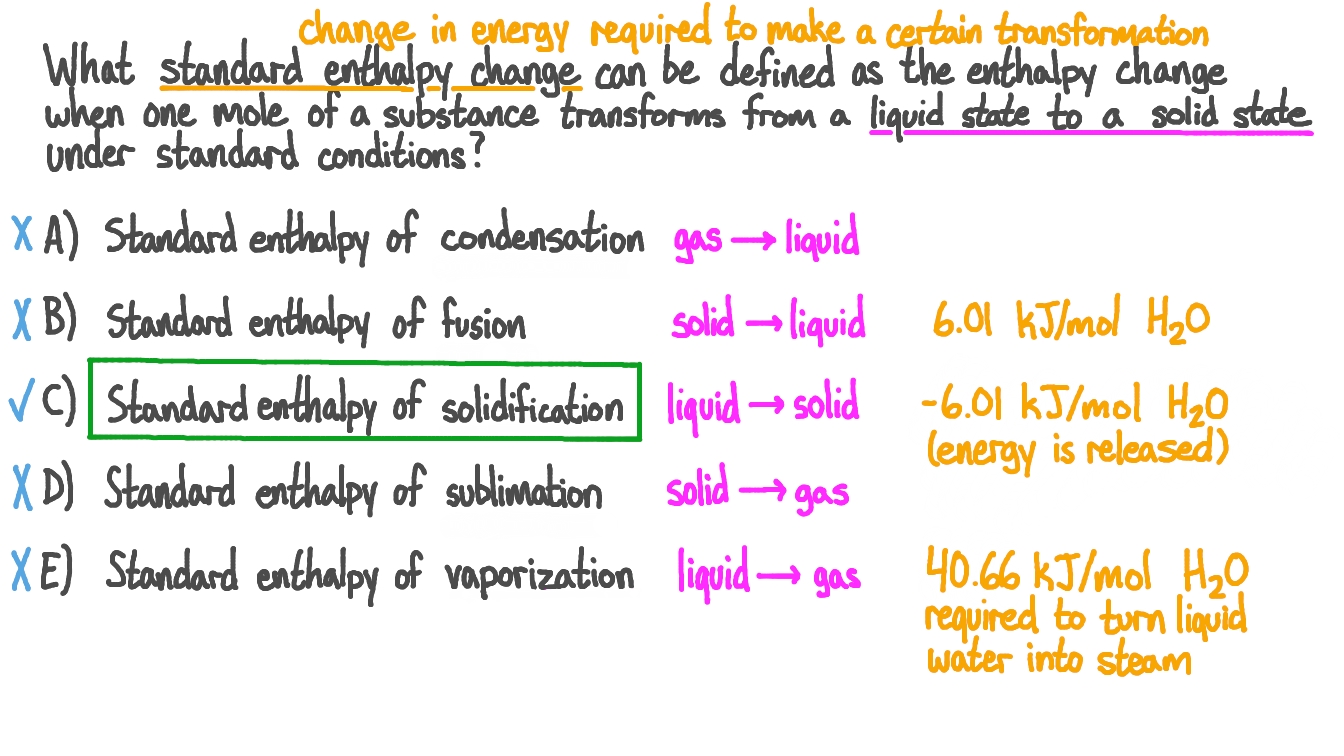 change in energy required to make a certain transformation
What standard enthalpy change can be defined as the enthalpy change
when one mole of a substance transforms from a liquid state to a solid state
under standard conditions?
X A) Standard enthalpy of condensation gas → liquid
X B) Standard enthalpy of fusion solid → liquid 6.01 kJ/mol H₂O
✓ C) Standard enthalpy of solidification liquid → solid -6.01 kJ/mol H₂O
(energy is released)
X D) Standard enthalpy of sublimation solid → gas
X E) Standard enthalpy of vaporization liquid → gas 40.66 kJ/mol H₂O
required to turn liquid
water into steam